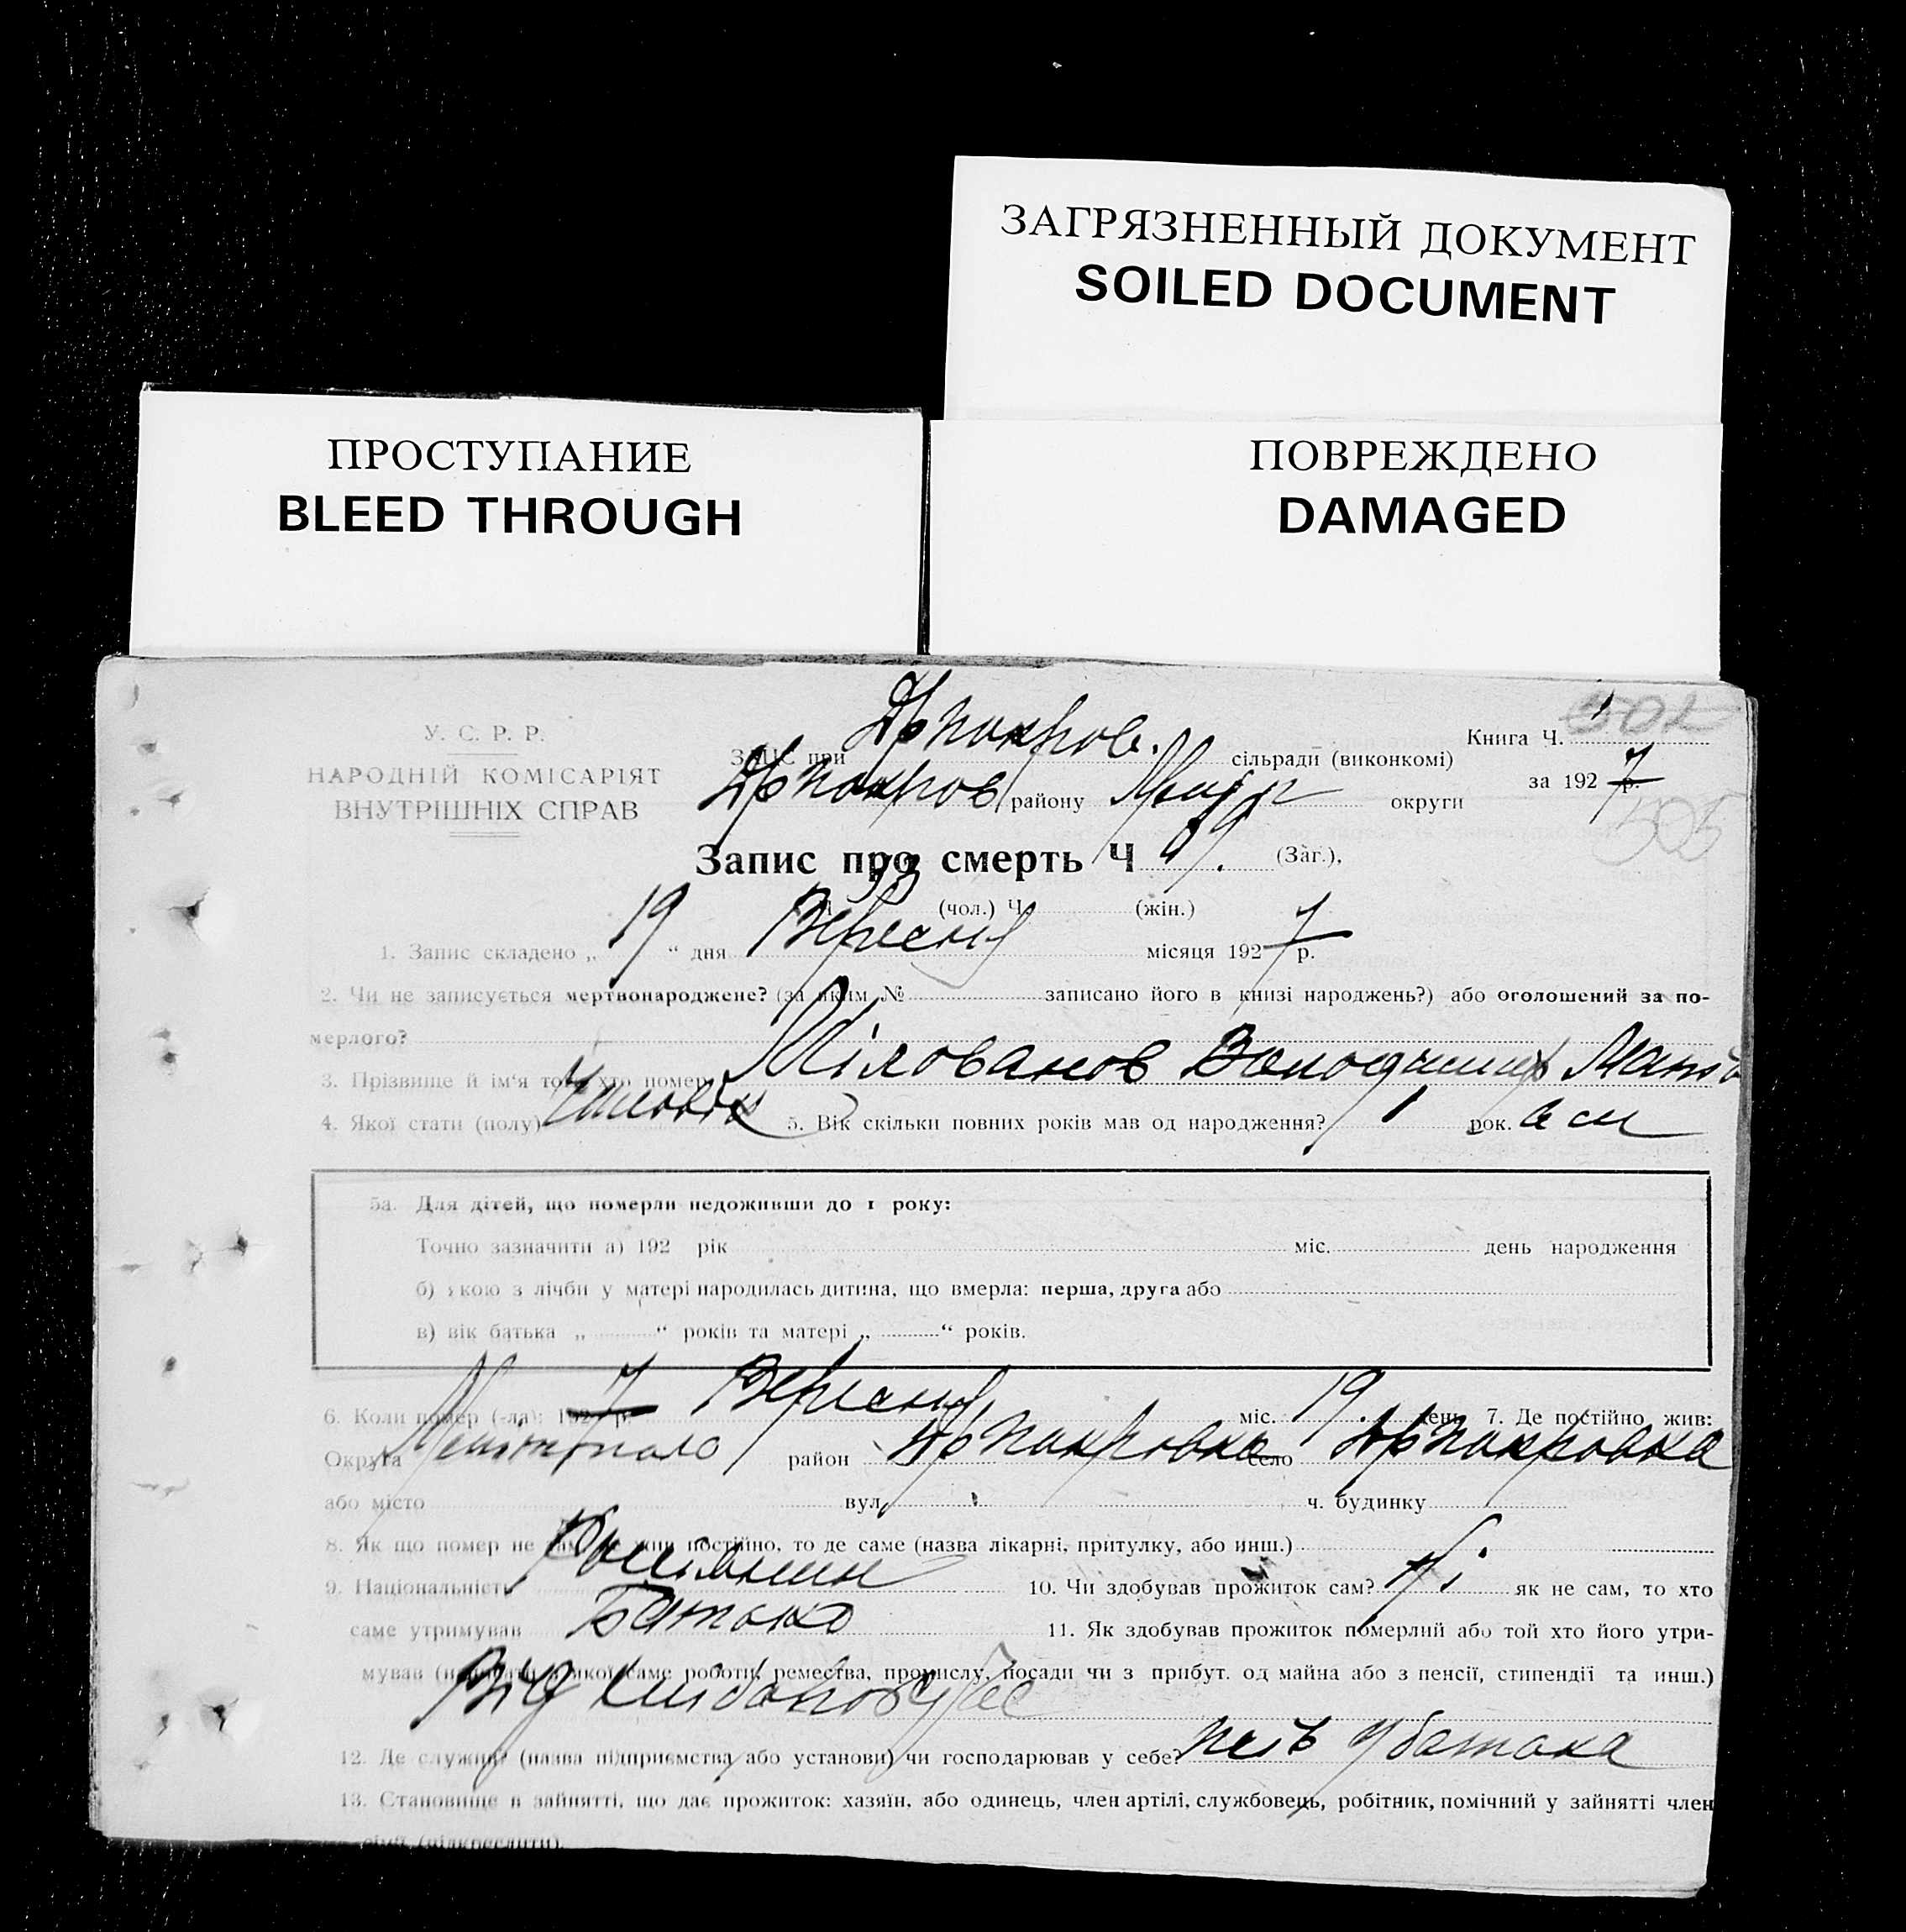 ЗАГРЯЗНЕННЫЙ ДОКУМЕНТ
SOILED DOCUMENT
ПРОСТУПАНИЕ
BLEED THROUGH
ПОВРЕЖДЕНО
DAMAGED
У. С. Р. Р.
НАРОДНІЙ КОМІСАРІЯТ
ВНУТРІШНІХ СПРАВ
502
Книга Ч. 1
ЗАГС при сільради (виконкомі)
за 1927 р.
району округи
505
Запис про смерть Ч 69. (Заг.),
33 (чол.) Ч. (жін.)
1. Запис складено „ 19 “ дня Вересня місяця 1927 р.
2. Чи не записується мертвонароджене? (за яким № записано його в книзі народжень?) або оголошений за по-
мерлого?
3. Прізвище й ім'я того, хто помер Мілованов Володимир
4. Якої стати (полу) Чоловік 5. Вік скільки повних років мав од народження? 1 рок. 6 м
5а. Для дітей, що померли недоживши до 1 року:
Точно зазначити а) 192 рік міс. день народження
б) якою з лічби у матері народилась дитина, що вмерла: перша, друга або
в) вік батька „ “ років та матері „ “ років.
6. Коли помер (-ла): 1927 р. Вересня міс. 19 день 7. Де постійно жив:
Округа район село
або місто вул. ч. будинку
8. Як що помер не там, де жив постійно, то де саме (назва лікарні, притулку, або инш.)
9. Національність 10. Чи здобував прожиток сам? Ні як не сам, то хто
саме утримував Батько 11. Як здобував прожиток померлий або той хто його утри-
мував (написати з якої саме роботи, ремества, промислу, посади чи з прибут. од майна або з пенсії, стипендії та инш.)
Від хліборобства
12. Де служив? (назва підприємства або установи) чи господарював у себе? у батька
13. Становище в зайнятті, що дає прожиток: хазяїн, або одинець, член артілі, службовець, робітник, помічний у зайнятті член
сімї (підкреслити).